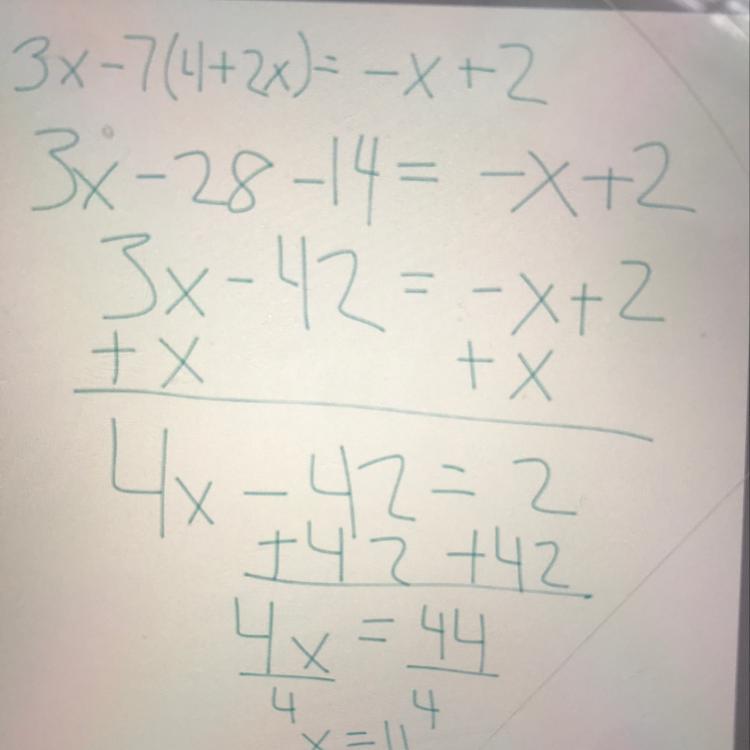 3x-7(4+2x)= -x+2
3x-28-14= -x+2
3x-42= -x+2
+x +x
4x-42=2
+42 +42
4x = 44
4 4
x=11